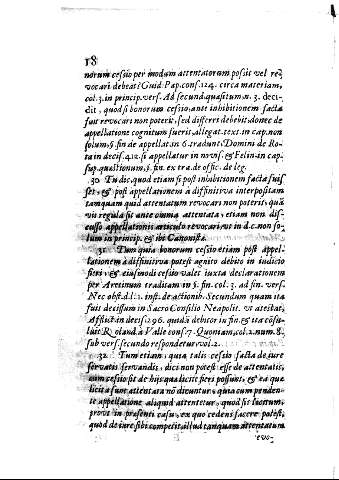 18
norum cessio per modum attentatorum possit vel re-
vocari debeat? Guid. Pap. cons. 124. circa materiam,
col. 3. in princip. vers. Ad secund. quæsitum n. 3. deci-
dit, quod si bonorum cessio, ante inhibitionem facta
fuit revocari non poterit, sed differri debebit, donec de
appellatione cognitum fuerit, allegat text. in cap. non
solum, § fin de appellat. in 6. tradunt, Domini de Ro-
ta in decis. 412. si appellatur in novis. & Felin in cap.
sup. quæstionum, §. fin. ex tra. de offic. de leg.
30 Tu dic, quod etiam si post inhibitionem facta fuis
set, & post appellationem à diffinitiva interpositam
tamquam quid attentatum revocari non poterit, quã
vis regula sit ante omnia attentata, etiam non dis-
cusso appellationis articulo revocari, ut in d.c. non so-
lum in princip. & ibi Canonistæ.
31. Tum quia bonorum cessio etiam post appel-
lationem à diffinitiva potest agnito debito in iudicio
fieri, & eiusmodi cessio valet iuxta declarationem
per Aretinum traditam in §. fin. col. 3. ad fin. vers.
Nec obst. d. l. 2. inst. de actionib. Secundum quam ita
fuit decissum in Sacro Consilio Neapolit. ut atestat,
Afflict. in decis. 196. quidam debitor in fin. & ita cõsu-
luit Roland. à Valle cons. 7. Quoniam, col. 2. num. 8.
sub vers. secundo respondetur vol. 2.
32. Tum etiam, quia talis cessio facta de iure
servatis servandis, dici non potest esse de attentatis,
cum cessio sit de hijs quæ licitè fieri possunt, & ea que
licita sunt attentata nõ dicuntur, quia cum penden-
te appellatione aliquid attentetur, quod sit licitum,
prout in presenti casu, ex quo cedens facere potest,
quod de iure sibi competit illud tamquam attentatum
revo-